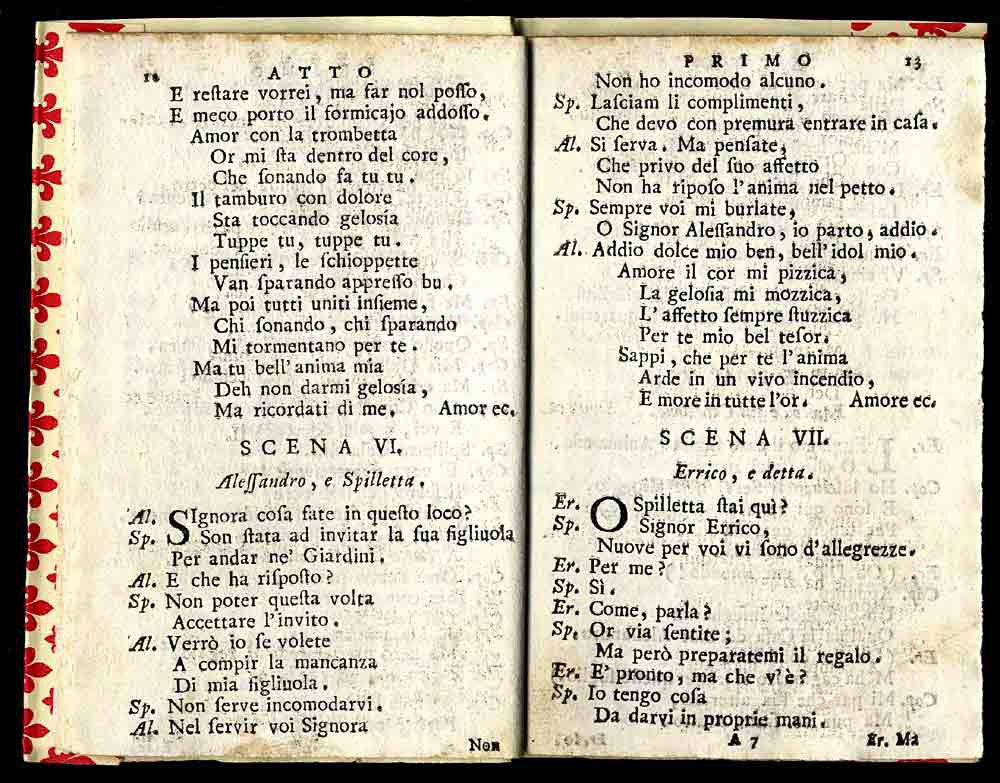 12 ATTO
E reſtare vorrei, ma far nol poſſo,
E meco porto il formicajo addoſſo.
Amor con la trombetta
Or mi ſta dentro del core,
Che ſonando fa tu tu.
Il tamburo con dolore
Sta toccando geloſía
Tuppe tu, tuppe tu.
I penſieri, le ſchioppette
Van ſparando appreſſo bu.
Ma poi tutti uniti inſieme,
Chi ſonando, chi ſparando
Mi tormentano per te.
Ma tu bell'anima mia
Deh non darmi geloſía,
Ma ricordati di me. Amor ec.
SCENA VI.
Aleſſandro, e Spilletta.
Al. SIgnora coſa fate in queſto loco?
Sp. Son ſtata ad invitar la ſua figliuola
Per andar ne' Giardini.
Al. E che ha riſpoſto?
Sp. Non poter queſta volta
Accettare l'invito.
Al. Verrò io ſe volete
A compir la mancanza
Di mia figliuola.
Sp. Non ſerve incomodarvi.
Al. Nel ſervir voi Signora
Non
PRIMO 13
Non ho incomodo alcuno.
Sp. Laſciam li complimenti,
Che devo con premura entrare in caſa.
Al. Si ſerva. Ma penſate,
Che privo del ſuo affetto
Non ha ripoſo l'anima nel petto.
Sp. Sempre voi mi burlate,
O Signor Aleſſandro, io parto, addio.
Al. Addio dolce mio ben, bell'idol mio.
Amore il cor mi pizzica,
La geloſia mi mozzica,
L'affetto ſempre ſtuzzica
Per te mio bel teſor.
Sappi, che per te l'anima
Arde in un vivo incendio,
E more in tutte l'or. Amore ec.
SCENA VII.
Errico, e detta.
Er. O Spilletta ſtai quì?
Sp. Signor Errico,
Nuove per voi vi ſono d'allegrezze.
Er. Per me?
Sp. Sì.
Er. Come, parla?
Sp. Or via ſentite;
Ma però preparatemi il regalo.
Er. E' pronto, ma che v'è?
Sp. Io tengo coſa
Da darvi in proprie mani.
A 7 Er. Ma